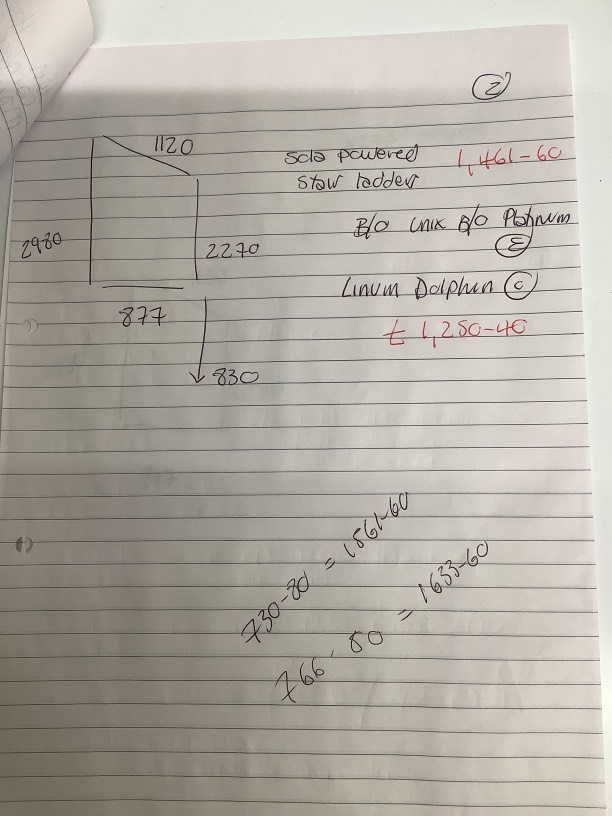 2
1120
2980
2270
877
830
solo powered 1,461-60
stow ladders
B/O Unix B/O Platinum
E
Linum Dolphin C
£ 1,250-40
730-80 = 1561-60
766.80 = 1633-60